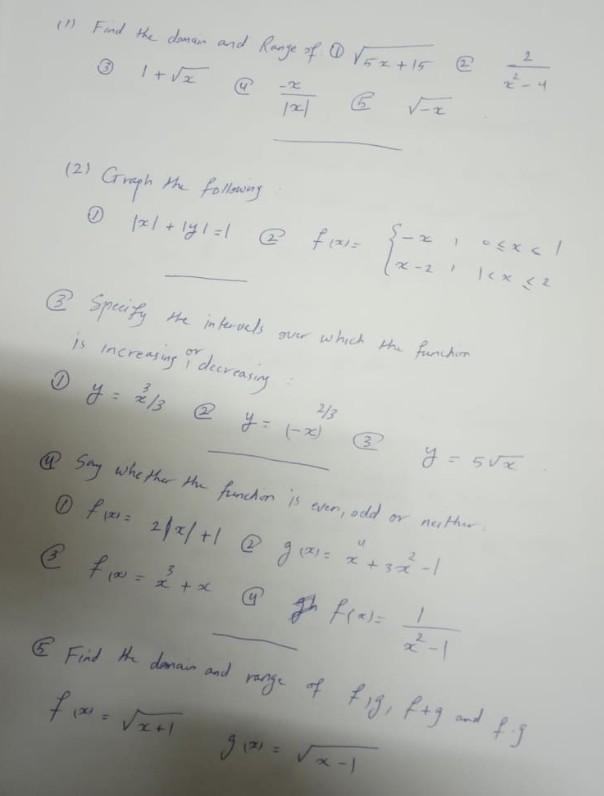 (1) Find the domain and Range of ① √5x+15 ② 2/(x²-4)
③ 1+√x ④ -x/|x| ⑤ √-x
(2) Graph the following :
① |x| + |y| = 1 ② f(x) = { -x , 0 ≤ x < 1
x-2 , 1 < x ≤ 2
③ Specify the intervals over which the function
is increasing or decreasing :
① y = x³/3 ② y = (-x)^2/3 ③ y = 5√x
④ Say whether the function is even, odd or neither.
① f(x) = 2|x| + 1 ② g(x) = x⁴ + 3x² - 1
③ f(x) = x³ + x ④ f(x) = 1/(x²-1)
⑤ Find the domain and range of f, g, f+g and f.g
f(x) = √x+1 g(x) = √x-1